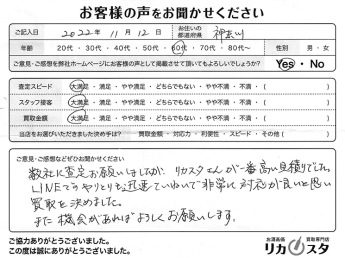 お客様の声をお聞かせください
ご記入日 2022年 11月 12日 お住いの都道府県 神奈川
年齢 20代・30代・40代・50代・60代・70代・80代〜 性別 男・女
ご意見・ご感想を弊社ホームページにお客様の声として掲載させて頂いてもよろしいでしょうか? Yes・No
査定スピード 大満足・満足・やや満足・どちらでもない・やや不満・不満・( )
スタッフ接客 大満足・満足・やや満足・どちらでもない・やや不満・不満・( )
買取金額 大満足・満足・やや満足・どちらでもない・やや不満・不満・( )
当店をお選びいただきました決め手は? 買取金額・対応力・利便性・スピード・その他( )
ご意見・ご感想などぜひお聞かせください
数社に査定お願いしましたが、リカスタさんが一番高い見積りでした。
LINEでのやりとりも迅速でていねいで非常に対応が良いと思い
買取を決めました。
また機会があればよろしくお願いします。
ご協力ありがとうございました。
この度は誠にありがとうございました。
お酒高価 買取専門店
リカスタ